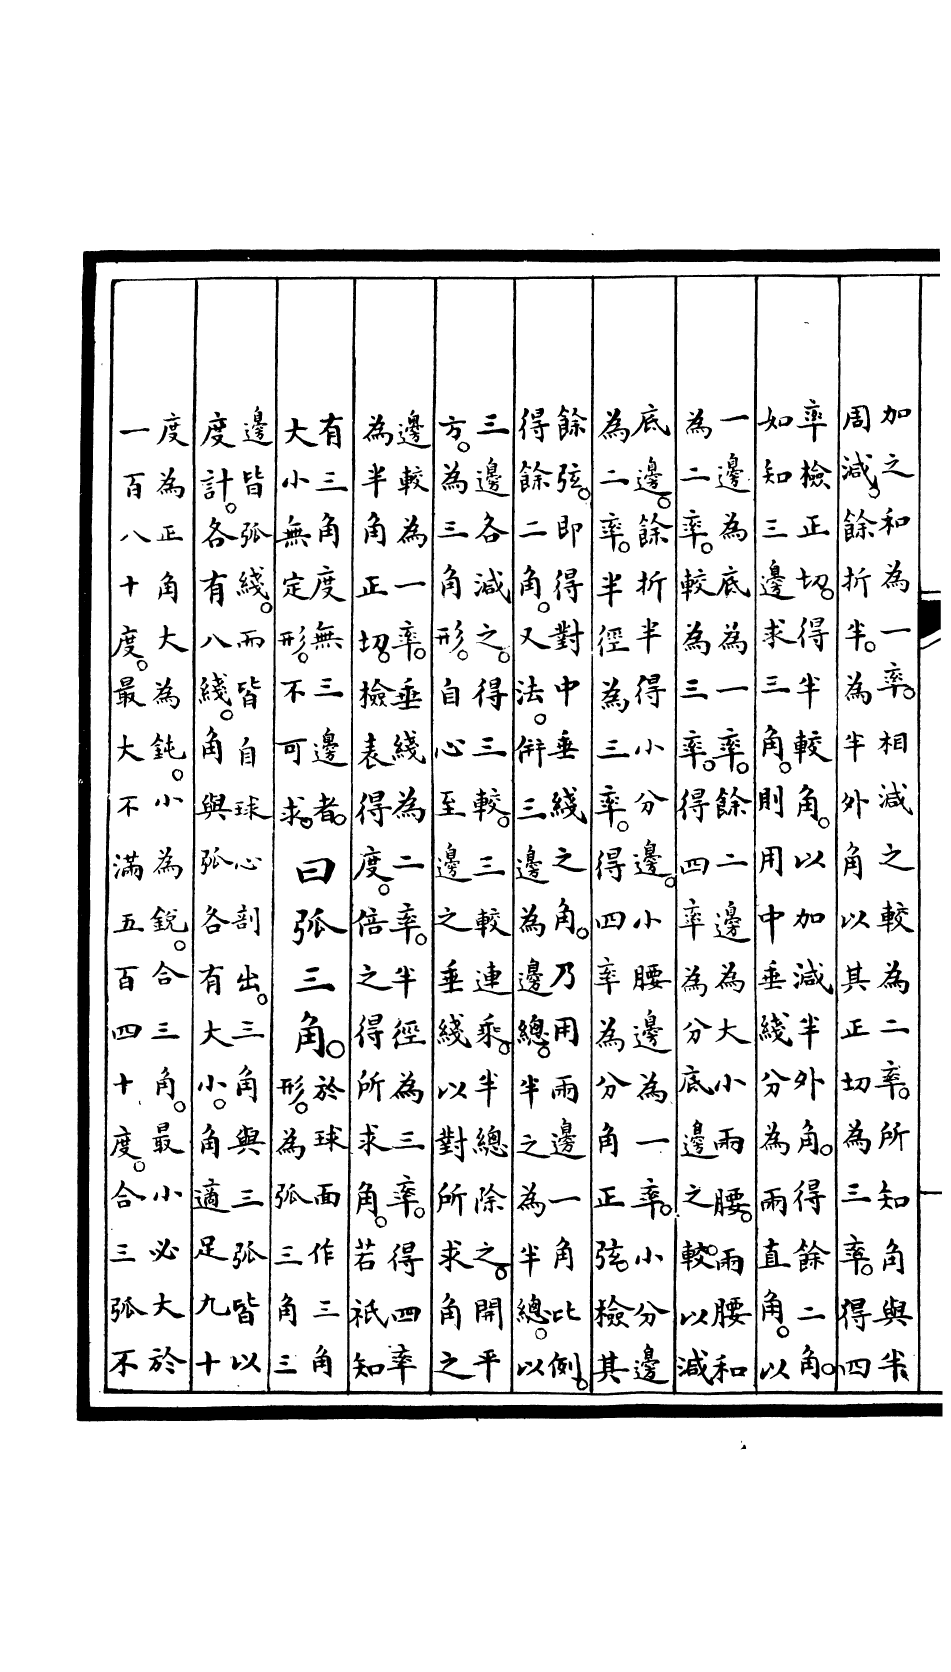 加之和為一率。相減之較為二率。所知角與半
周減。餘折半。為半外角以其正切為三率。得四
率檢正切。得半較角。以加減半外角。得餘二角。
如知三邊求三角。則用中垂綫分為兩直角。以
一邊為底為一率。餘二邊為大小兩腰。兩腰和
為二率。較為三率。得四率為分底邊之較。以減
底邊。餘折半得小分邊。小腰邊為一率。小分邊
為二率。半徑為三率。得四率為分角正弦。檢其
餘弦。即得對中垂綫之角。乃用兩邊一角比例。
得餘二角。又法。倂三邊為邊總。半之為半總。以
三邊各減之。得三較。三較連乘。半總除之。開平
方。為三角形。自心至邊之垂綫以對所求角之
邊較為一率。垂綫為二率。半徑為三率。得四率
為半角正切。檢表得度。倍之得所求角。若祇知
有三角度無三邊者。
大小無定形。不可求。
曰弧三角。
於球面作三角
形。為弧三角三
邊皆弧綫。而皆自球心剖出。三角與三弧皆以
度計。各有八綫。角與弧各有大小。角適足九十
度為正角大為鈍。小為銳。合三角。最小必大於
一百八十度。最大不滿五百四十度。合三弧不